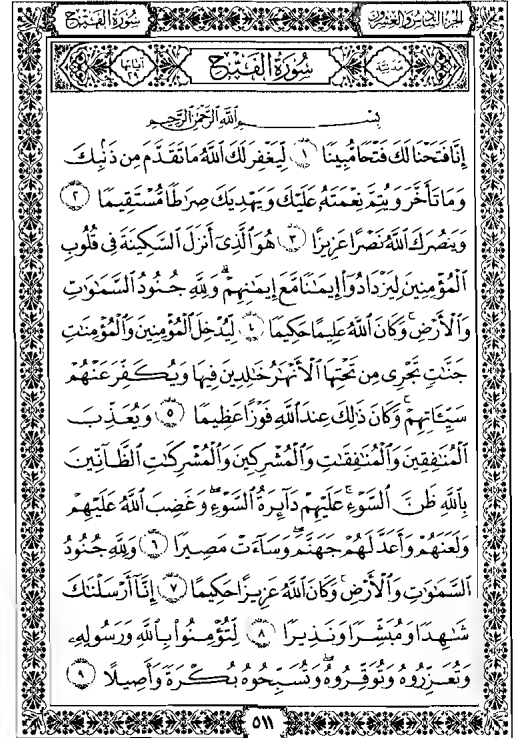 الجزء السادس والعشرون سورة الفتح
مدنية سورة الفتح آياتها ٢٩
بِسْمِ ٱللَّهِ ٱلرَّحْمَٰنِ ٱلرَّحِيمِ
إِنَّا فَتَحْنَا لَكَ فَتْحًا مُّبِينًا ١ لِّيَغْفِرَ لَكَ ٱللَّهُ مَا تَقَدَّمَ مِن ذَنۢبِكَ
وَمَا تَأَخَّرَ وَيُتِمَّ نِعْمَتَهُۥ عَلَيْكَ وَيَهْدِيَكَ صِرَٰطًا مُّسْتَقِيمًا ٢
وَيَنصُرَكَ ٱللَّهُ نَصْرًا عَزِيزًا ٣ هُوَ ٱلَّذِىٓ أَنزَلَ ٱلسَّكِينَةَ فِى قُلُوبِ
ٱلْمُؤْمِنِينَ لِيَزْدَادُوٓا۟ إِيمَٰنًا مَّعَ إِيمَٰنِهِمْ ۗ وَلِلَّهِ جُنُودُ ٱلسَّمَٰوَٰتِ
وَٱلْأَرْضِ ۚ وَكَانَ ٱللَّهُ عَلِيمًا حَكِيمًا ٤ لِّيُدْخِلَ ٱلْمُؤْمِنِينَ وَٱلْمُؤْمِنَٰتِ
جَنَّٰتٍ تَجْرِى مِن تَحْتِهَا ٱلْأَنْهَٰرُ خَٰلِدِينَ فِيهَا وَيُكَفِّرَ عَنْهُمْ
سَيِّـَٔاتِهِمْ ۚ وَكَانَ ذَٰلِكَ عِندَ ٱللَّهِ فَوْزًا عَظِيمًا ٥ وَيُعَذِّبَ
ٱلْمُنَٰفِقِينَ وَٱلْمُنَٰفِقَٰتِ وَٱلْمُشْرِكِينَ وَٱلْمُشْرِكَٰتِ ٱلظَّآنِّينَ
بِٱللَّهِ ظَنَّ ٱلسَّوْءِ ۚ عَلَيْهِمْ دَآئِرَةُ ٱلسَّوْءِ ۖ وَغَضِبَ ٱللَّهُ عَلَيْهِمْ
وَلَعَنَهُمْ وَأَعَدَّ لَهُمْ جَهَنَّمَ ۖ وَسَآءَتْ مَصِيرًا ٦ وَلِلَّهِ جُنُودُ
ٱلسَّمَٰوَٰتِ وَٱلْأَرْضِ ۚ وَكَانَ ٱللَّهُ عَزِيزًا حَكِيمًا ٧ إِنَّآ أَرْسَلْنَٰكَ
شَٰهِدًا وَمُبَشِّرًا وَنَذِيرًا ٨ لِّتُؤْمِنُوا۟ بِٱللَّهِ وَرَسُولِهِۦ
وَتُعَزِّرُوهُ وَتُوَقِّرُوهُ ۚ وَتُسَبِّحُوهُ بُكْرَةً وَأَصِيلًا ٩
٥١١